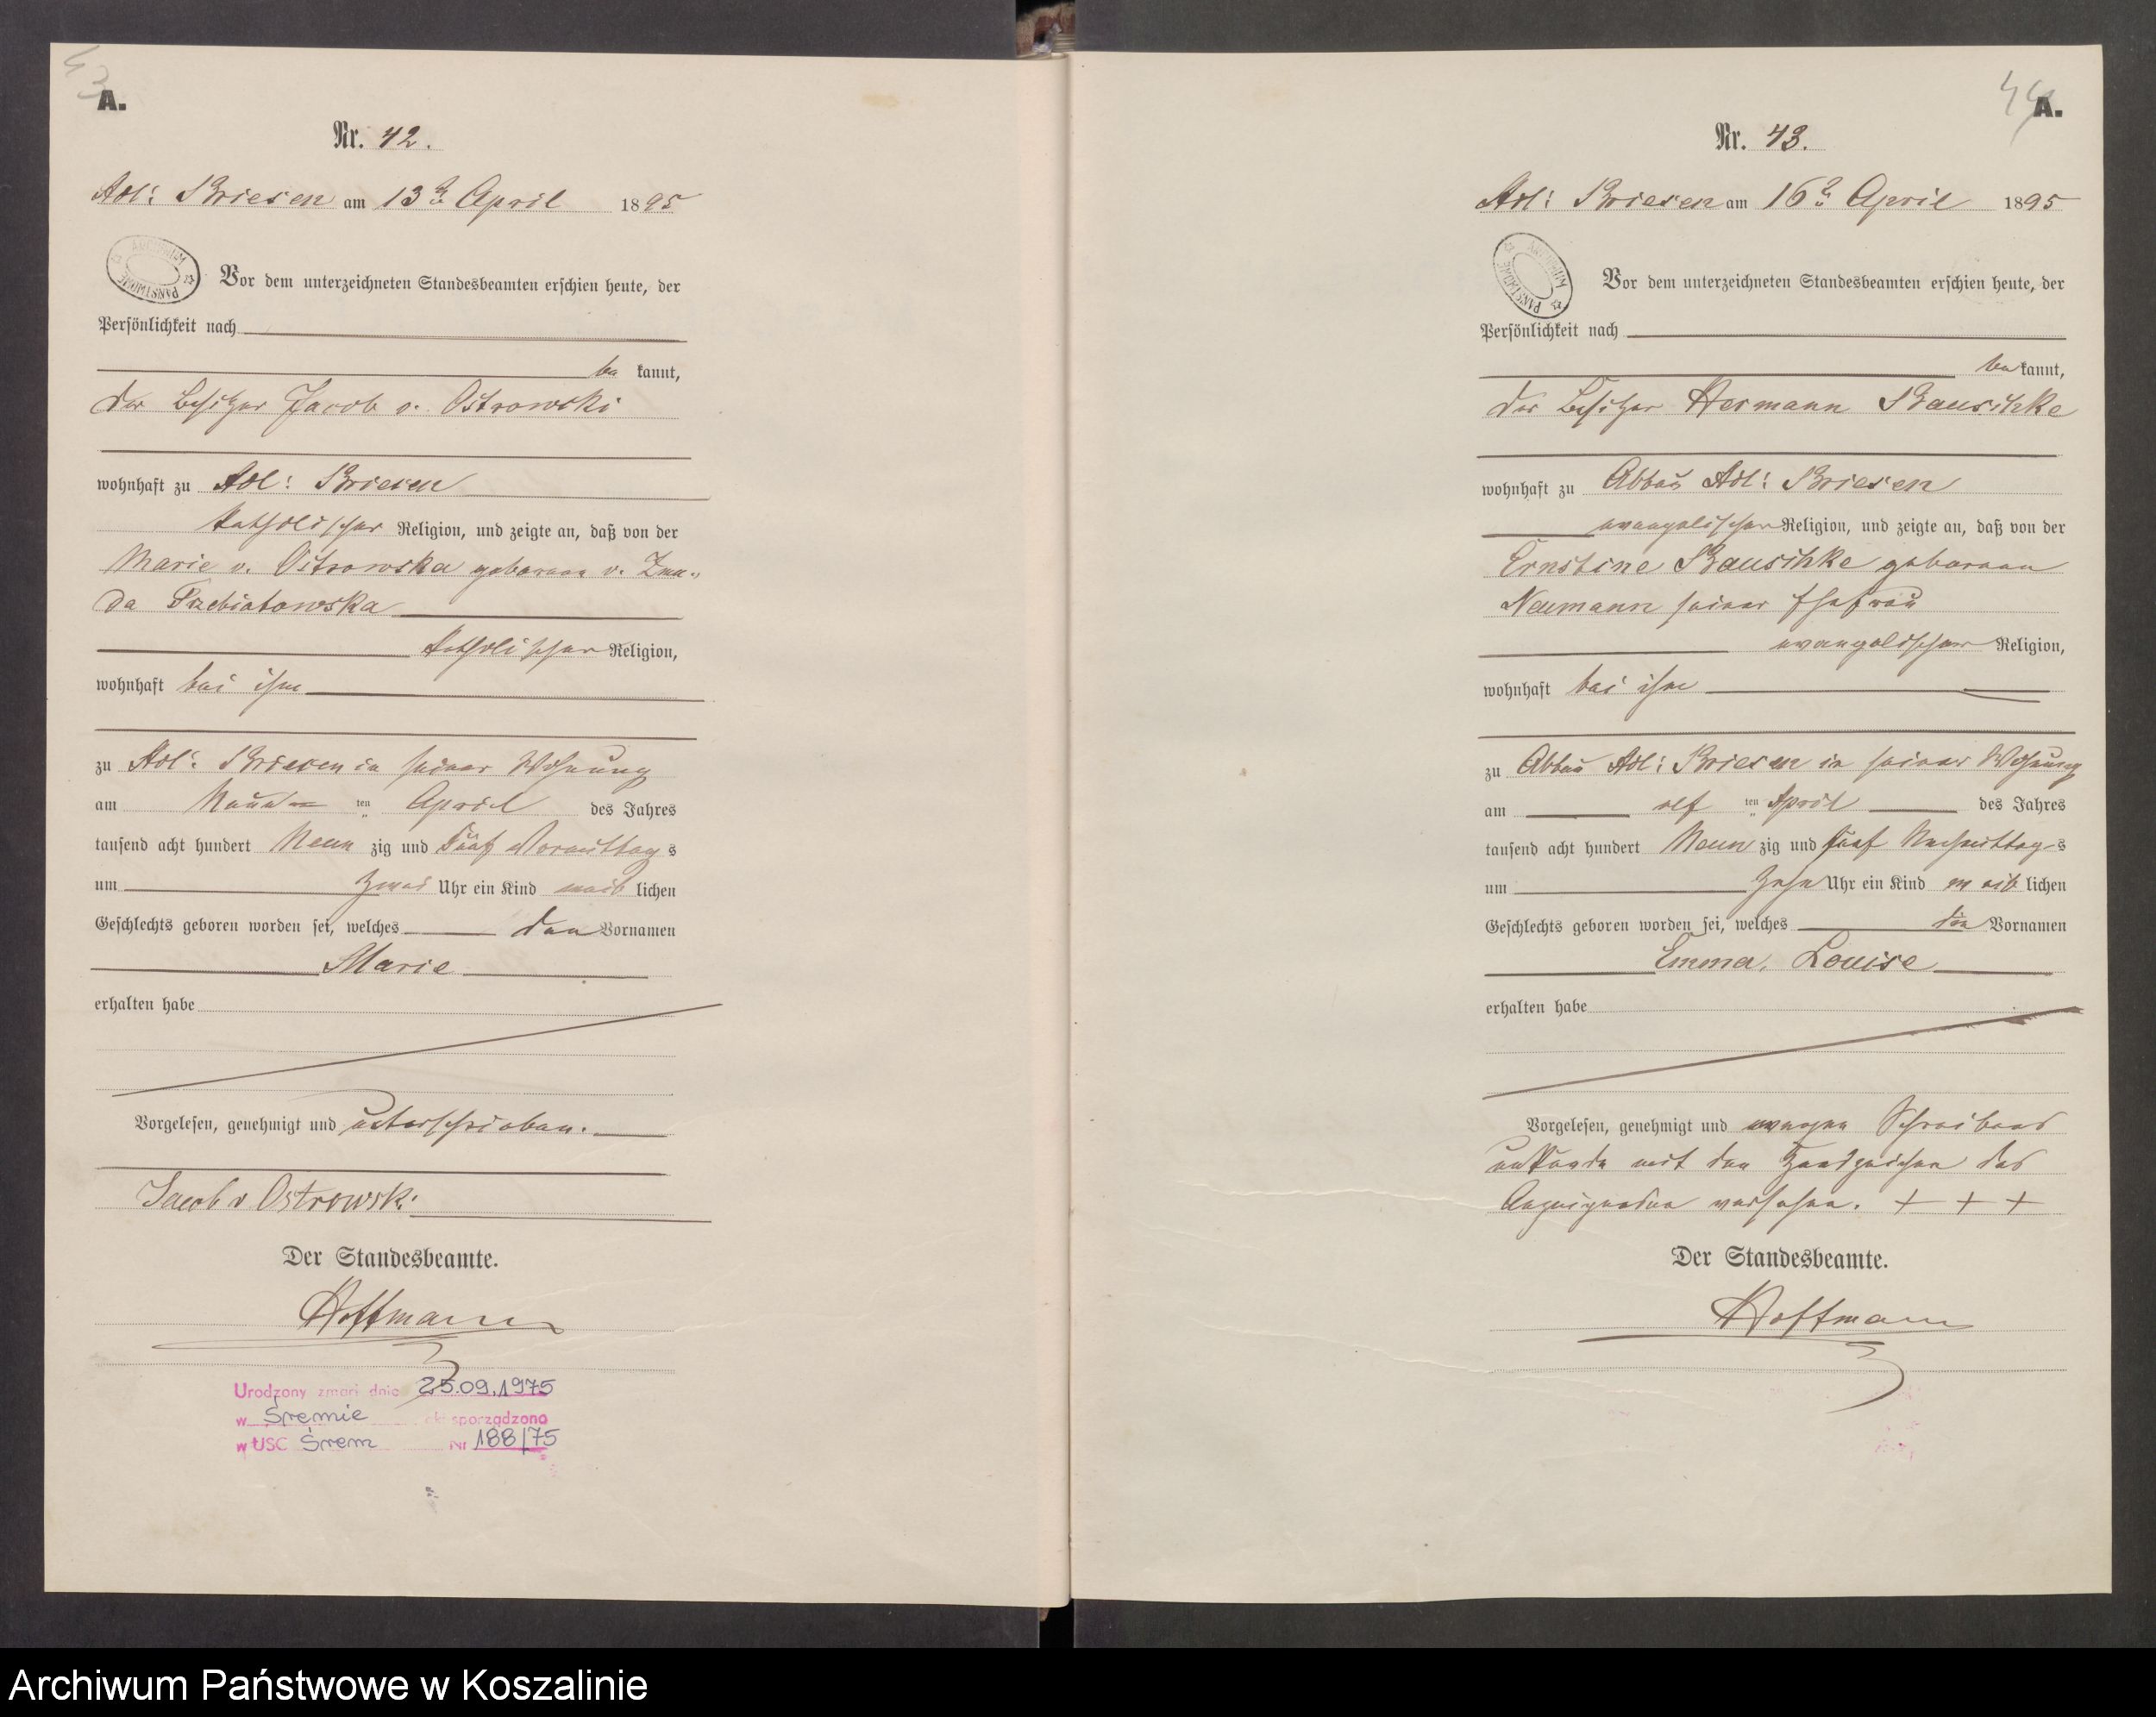 43
A.
Nr. 42.
Adl: Briesen am 13t April 1895
ARCHIWUM PAŃSTWOWE
Vor dem unterzeichneten Standesbeamten erschien heute, der
Persönlichkeit nach
be kannt,
der Besitzer Jacob v. Ostrowski
wohnhaft zu Adl: Briesen
katholischer Religion, und zeigte an, daß von der
Marie v. Ostrowska geborene v.
da Trzebiatowska
katholischer Religion,
wohnhaft bei ihm
zu Adl: Briesen in seiner Wohnung
am Neun ten April des Jahres
tausend acht hundert Neun zig und fünf Vormittag s
um Zwei Uhr ein Kind weib lichen
Geschlechts geboren worden sei, welches den Vornamen
Marie
erhalten habe
Vorgelesen, genehmigt und unterschrieben.
Jacob v Ostrowski
Der Standesbeamte.
Hoffmann
Urodzony zmarł dnia 25.09.1975
w Śremie akt sporządzono
w USC Śrem Nr 188/75
44
A.
Nr. 43.
Adl: Briesen am 16t April 1895
ARCHIWUM PAŃSTWOWE
Vor dem unterzeichneten Standesbeamten erschien heute, der
Persönlichkeit nach
be kannt,
der Besitzer Hermann Bauschke
wohnhaft zu Abbau Adl: Briesen
evangelischer Religion, und zeigte an, daß von der
Ernstine Bauschke geborenen
Neumann seiner Ehefrau
evangelischer Religion,
wohnhaft bei ihm
zu Abbau Adl: Briesen in seiner Wohnung
am elf ten April des Jahres
tausend acht hundert Neun zig und fünf Nachmittag s
um Zehn Uhr ein Kind weib lichen
Geschlechts geboren worden sei, welches die Vornamen
Emma, Louise
erhalten habe
Vorgelesen, genehmigt und wegen Schreibens
unkunde mit den Handzeichen des
Anzeigenden versehen. + + +
Der Standesbeamte.
Hoffmann
Archiwum Państwowe w Koszalinie